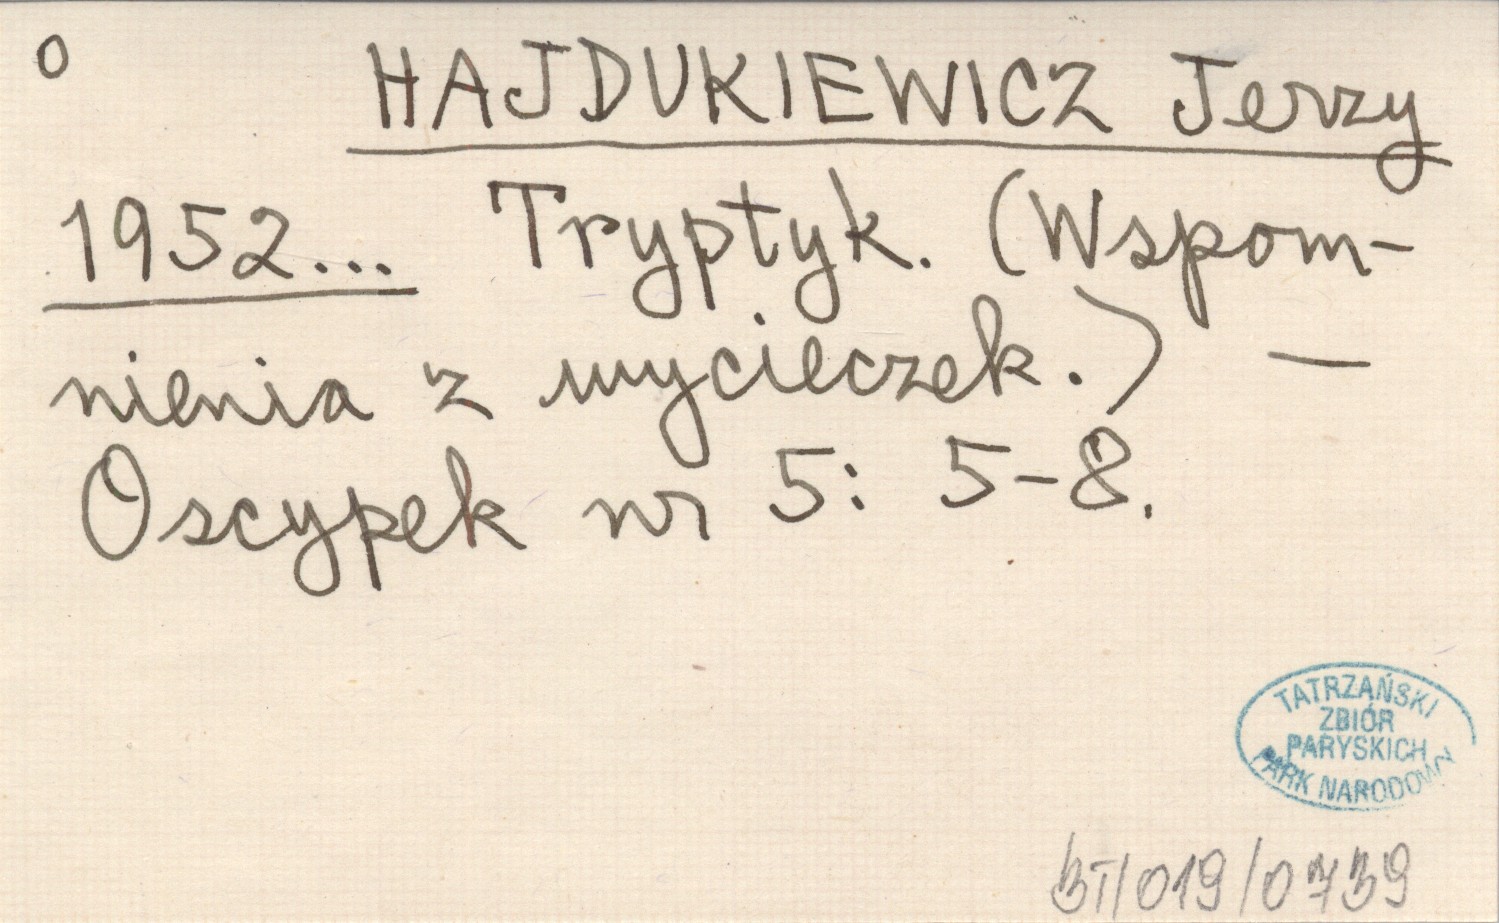 o HAJDUKIEWICZ Jerzy
1952... Tryptyk. (Wspom-
nienia z wycieczek.) —
Oscypek nr 5: 5-8.
TATRZAŃSKI
ZBIÓR
PARYSKICH
PARK NARODOWY
BT/019/0739